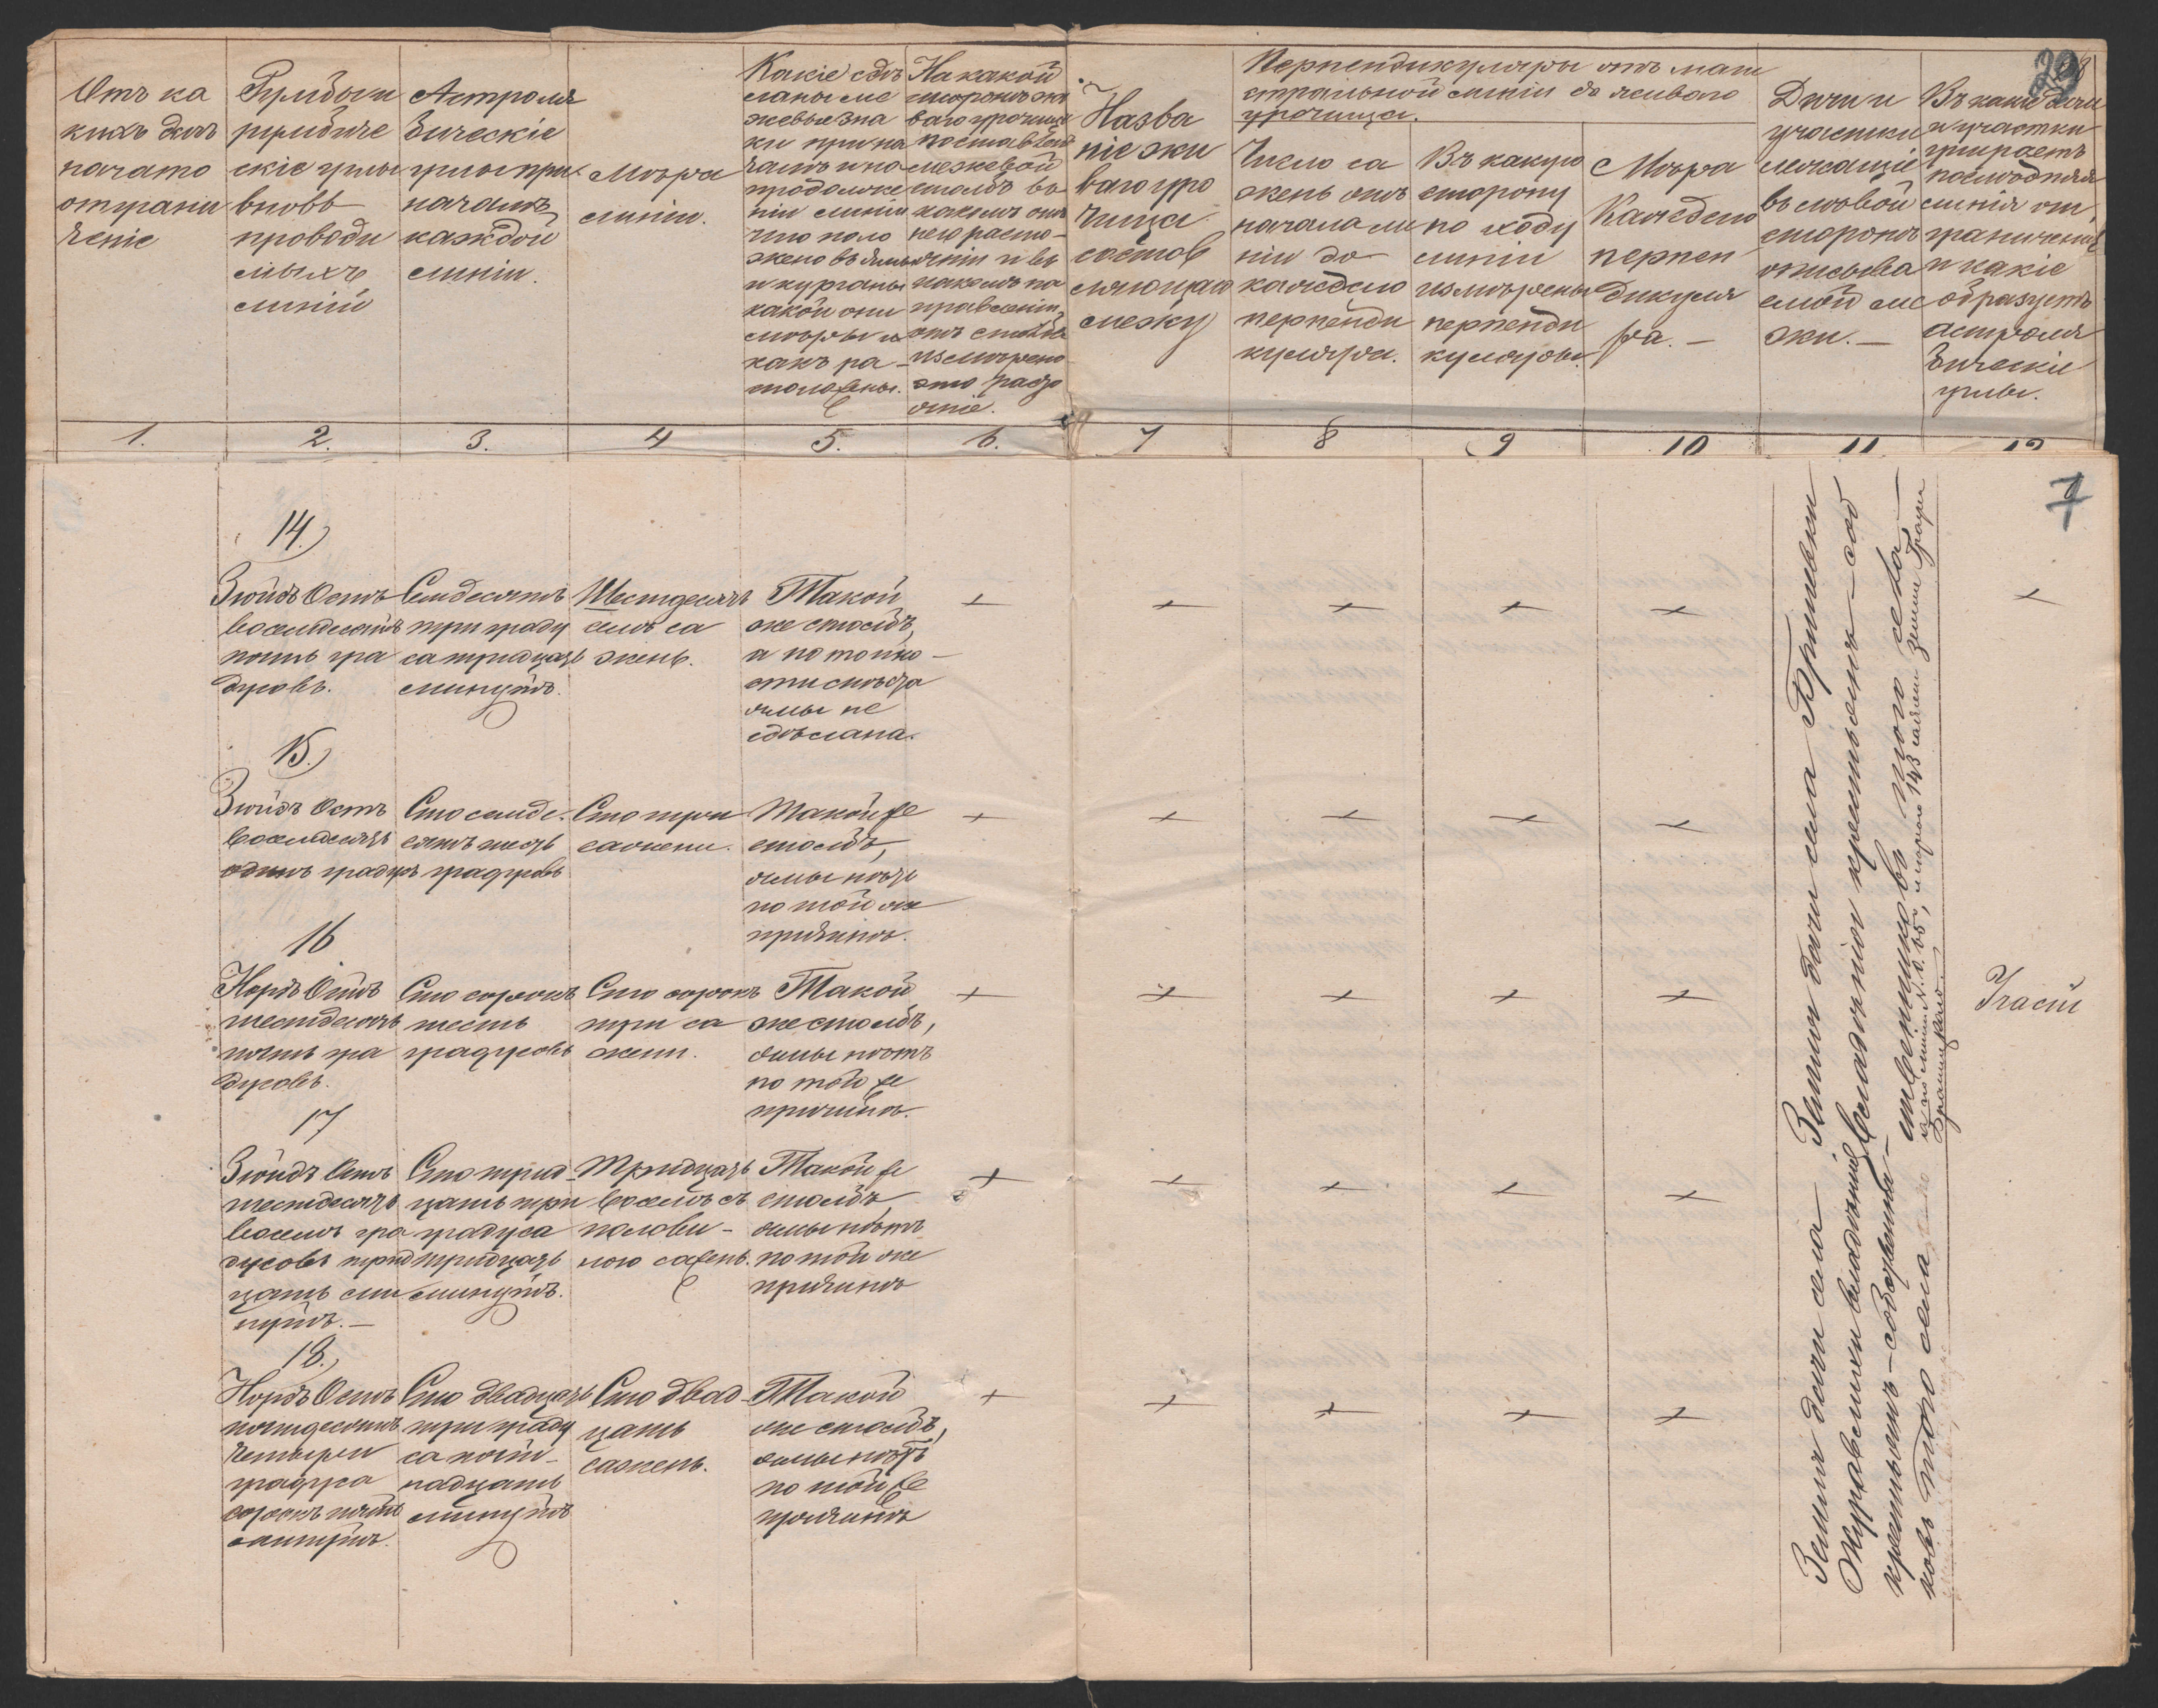 Отъ ка
кихъ дачъ
начато
отграни
ченіе
Румбы и
румбиче
скіе углы
вновь
проводи
мыхъ
линій
Астроля
бическіе
углы при
началѣ
каждой
линіи.
Мѣра
линіи.
Какіе сдѣ
ланы ме
жевые зна
ки при на
чалѣ и по
продолже
ніи линіи
что поло
жено въ ямы
и курганы
какой они
мѣры и
какъ ра-
положены.
На какой
сторонѣ жи
ваго урочища
поставленъ
межевой
столбъ въ
какомъ отъ
него разсто-
яніи и въ
какомъ на
правленіи
отъ столба
измѣрено
это разсто
яніе.
Назва
ніе жи
ваго уро
чища
состав
ляющаго
межу
Перпендикуляры отъ маги
стральной линіи до живаго
урочища.
Число са
жень отъ
начала ли
ніи до
каждаго
перпенди
куляра.
Въ какую
сторону
по ходу
линіи
измѣрены
перпенди
куляры.
Мѣра
каждаго
перпен
дикуля
ра. —
Дачи и
участки
лежащіе
въ лѣвой
сторонѣ
описыва
емой ме
жи. —
Въ какіе дачи
и участки
упирается
послѣдняя
линія от
граниченія
и какіе
образуетъ
астроля
бическіе
углы.
1. 2. 3. 4 5. 6. 7 8 9 10 11 12
7
14.)
Зюйдъ Остъ
восемдесятъ
пять гра
дусовъ.
Семдесятъ
три граду
са тридцать
минутъ.
Шестдесятъ
семь са
жень.
Такой
же столбъ,
а по тѣсно-
сти мѣста
ямы не
сдѣлана.
+ + + + + +
15.)
Зюйдъ Остъ
восемдесятъ
одинъ градусъ
Сто семде-
сятъ шесть
градусовъ
Сто три
сажени.
Такой же
столбъ,
ямы нѣтъ
по той же
причинѣ.
+ + + + +
16
Нордъ Остъ
шестдесятъ
пять гра
дусовъ.
Сто сорокъ
шесть
градусовъ
Сто сорокъ
три са
жени.
Такой
же столбъ,
ямы нѣтъ
по той же
причинѣ.
+ + + + +
17
Зюйдъ Остъ
шестдесятъ
восемь гра
дусовъ трид
цать ми
нутъ. —
Сто трид-
цать три
градуса
тридцать
минутъ.
Тридцать
восемь съ
полови-
ною сажень.
Такой же
столбъ,
ямы нѣтъ
по той же
причинѣ
+ + + + +
18.)
Нордъ Остъ
пятдесятъ
четыре
градуса
сорокъ пять
минутъ.
Сто двадцать
три граду
са пят-
надцать
минутъ
Сто двад-
цать
сажень.
Такой
же столбъ,
ямы нѣтъ
по той же
причинѣ
+ + + + +
Земли дачи села
крестьянъ – собственни-
ковъ того села
Земли дачи села
владѣнія крестьянъ – соб
ственниковъ того села —